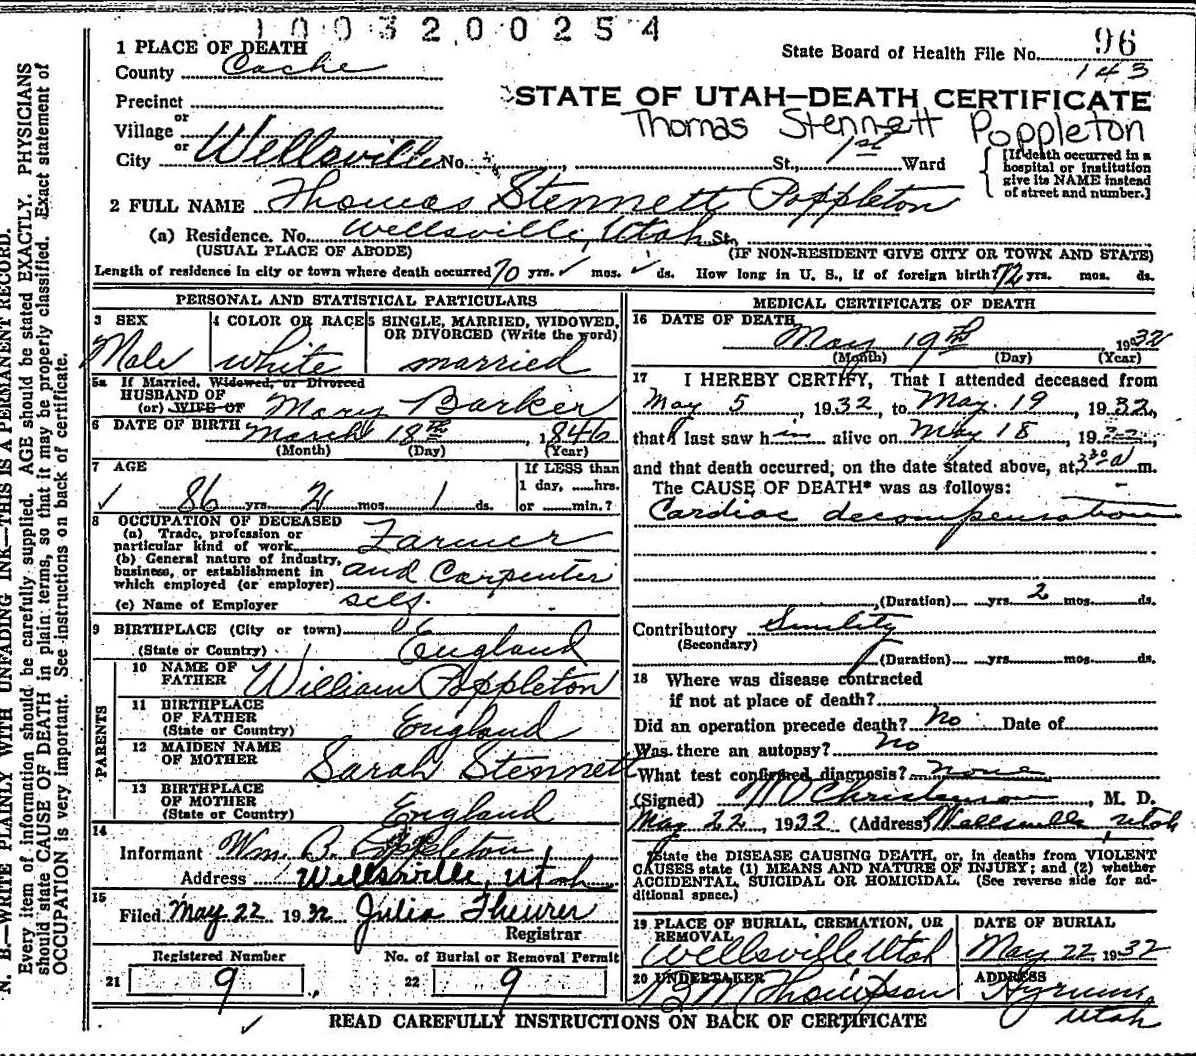 1003200254
1 PLACE OF DEATH
State Board of Health File No. 96
143
County Cache
Precinct
or
Village
or
City Wellsville No. , St., 1st Ward
STATE OF UTAH—DEATH CERTIFICATE
Thomas Stennett Poppleton
[If death occurred in a
hospital or institution
give its NAME instead
of street and number.]
2 FULL NAME Thomas Stennett Poppleton
(a) Residence. No. Wellsville, Utah St.,
(USUAL PLACE OF ABODE) (IF NON-RESIDENT GIVE CITY OR TOWN AND STATE)
Length of residence in city or town where death occurred 70 yrs. ✓ mos. ✓ ds. How long in U. S., if of foreign birth? 72 yrs. mos. ds.
PERSONAL AND STATISTICAL PARTICULARS
3 SEX
Male
4 COLOR OR RACE
white
5 SINGLE, MARRIED, WIDOWED,
OR DIVORCED (Write the word)
married
5a If Married, Widowed, or Divorced
HUSBAND OF
(or) WIFE OF Mary Barker
6 DATE OF BIRTH March 18th, 1846
(Month) (Day) (Year)
7 AGE
✓ 86 yrs. 2 mos. 1 ds.
If LESS than
1 day, ......hrs.
or ......min.?
8 OCCUPATION OF DECEASED
(a) Trade, profession or
particular kind of work Farmer
(b) General nature of industry,
business, or establishment in
which employed (or employer) and Carpenter
(c) Name of Employer self.
9 BIRTHPLACE (City or town)
(State or Country) England
PARENTS
10 NAME OF
FATHER William Poppleton
11 BIRTHPLACE
OF FATHER
(State or Country) England
12 MAIDEN NAME
OF MOTHER Sarah Stennett
13 BIRTHPLACE
OF MOTHER
(State or Country) England
14
Informant Wm. B. Poppleton
Address Wellsville, Utah
15
Filed May 22 1932 Julia Theurer
Registrar
Registered Number
21 9
No. of Burial or Removal Permit
22 9
MEDICAL CERTIFICATE OF DEATH
16 DATE OF DEATH
May 19th 1932
(Month) (Day) (Year)
17 I HEREBY CERTIFY, That I attended deceased from
May 5, 1932, to May 19, 1932,
that I last saw him alive on May 18, 1932,
and that death occurred, on the date stated above, at 330 a m.
The CAUSE OF DEATH* was as follows:
Cardiac decompensation
(Duration) yrs. 2 mos. ds.
Contributory Senility
(Secondary)
(Duration) yrs. mos. ds.
18 Where was disease contracted
if not at place of death?
Did an operation precede death? No Date of
Was there an autopsy? no
What test confirmed diagnosis? none
(Signed) Christenson, M. D.
May 22, 1932 (Address) Wellsville Utah
*State the DISEASE CAUSING DEATH, or, in deaths from VIOLENT
CAUSES state (1) MEANS AND NATURE OF INJURY; and (2) whether
ACCIDENTAL, SUICIDAL OR HOMICIDAL. (See reverse side for ad-
ditional space.)
19 PLACE OF BURIAL, CREMATION, OR
REMOVAL
Wellsville Utah
DATE OF BURIAL
May 22 1932
20 UNDERTAKER
Thompson
ADDRESS
Hyrum,
Utah
READ CAREFULLY INSTRUCTIONS ON BACK OF CERTIFICATE
N. B.—WRITE PLAINLY WITH UNFADING INK—THIS IS A PERMANENT RECORD.
Every item of information should be carefully supplied. AGE should be stated EXACTLY. PHYSICIANS
should state CAUSE OF DEATH in plain terms, so that it may be properly classified. Exact statement of
OCCUPATION is very important. See instructions on back of certificate.